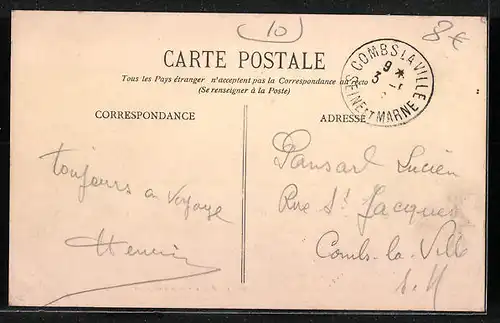 10
8€
CARTE POSTALE
Tous les Pays étranger n'acceptent pas la Correspondance au recto
(Se renseigner à la Poste)
COMBS LA VILLE
9 *
3
SEINE ET MARNE
CORRESPONDANCE
ADRESSE
toujours a voyage
Dansard Lucien
Rue St Jacques
Combs-la-Ville
S. M